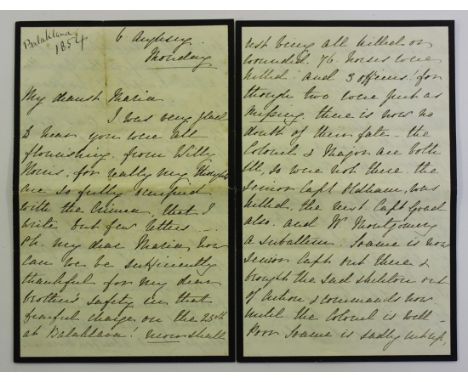 Balaklava
1854
6 Anglesey
Monday
My dearest Maria
I was very glad
to hear you were all
flourishing, from Willy
Horne, for really my thoughts
are so fully occupied
with the Crimea, that I
write but few letters ---
Oh my dear Maria, how
can we be sufficiently
thankful for my dear
brother's safety in that
fearful charge on the 25th
at Balaklava! never shall
rest being all killed or
wounded. 76 horses were
killed - and 3 officers, for
though two were put as
missing, there is now no
doubt of their fate - the
Colonel & Major are both
ill, so were not there, the
senior Capt Oldham, was
killed, the next Capt Goad
also, and Mr Montgomery
a subaltern. Soame is now
senior Capt out there &
brought the sad skeleton out
of action & commands now
until the Colonel is well -
Poor Soame is sadly cut up,